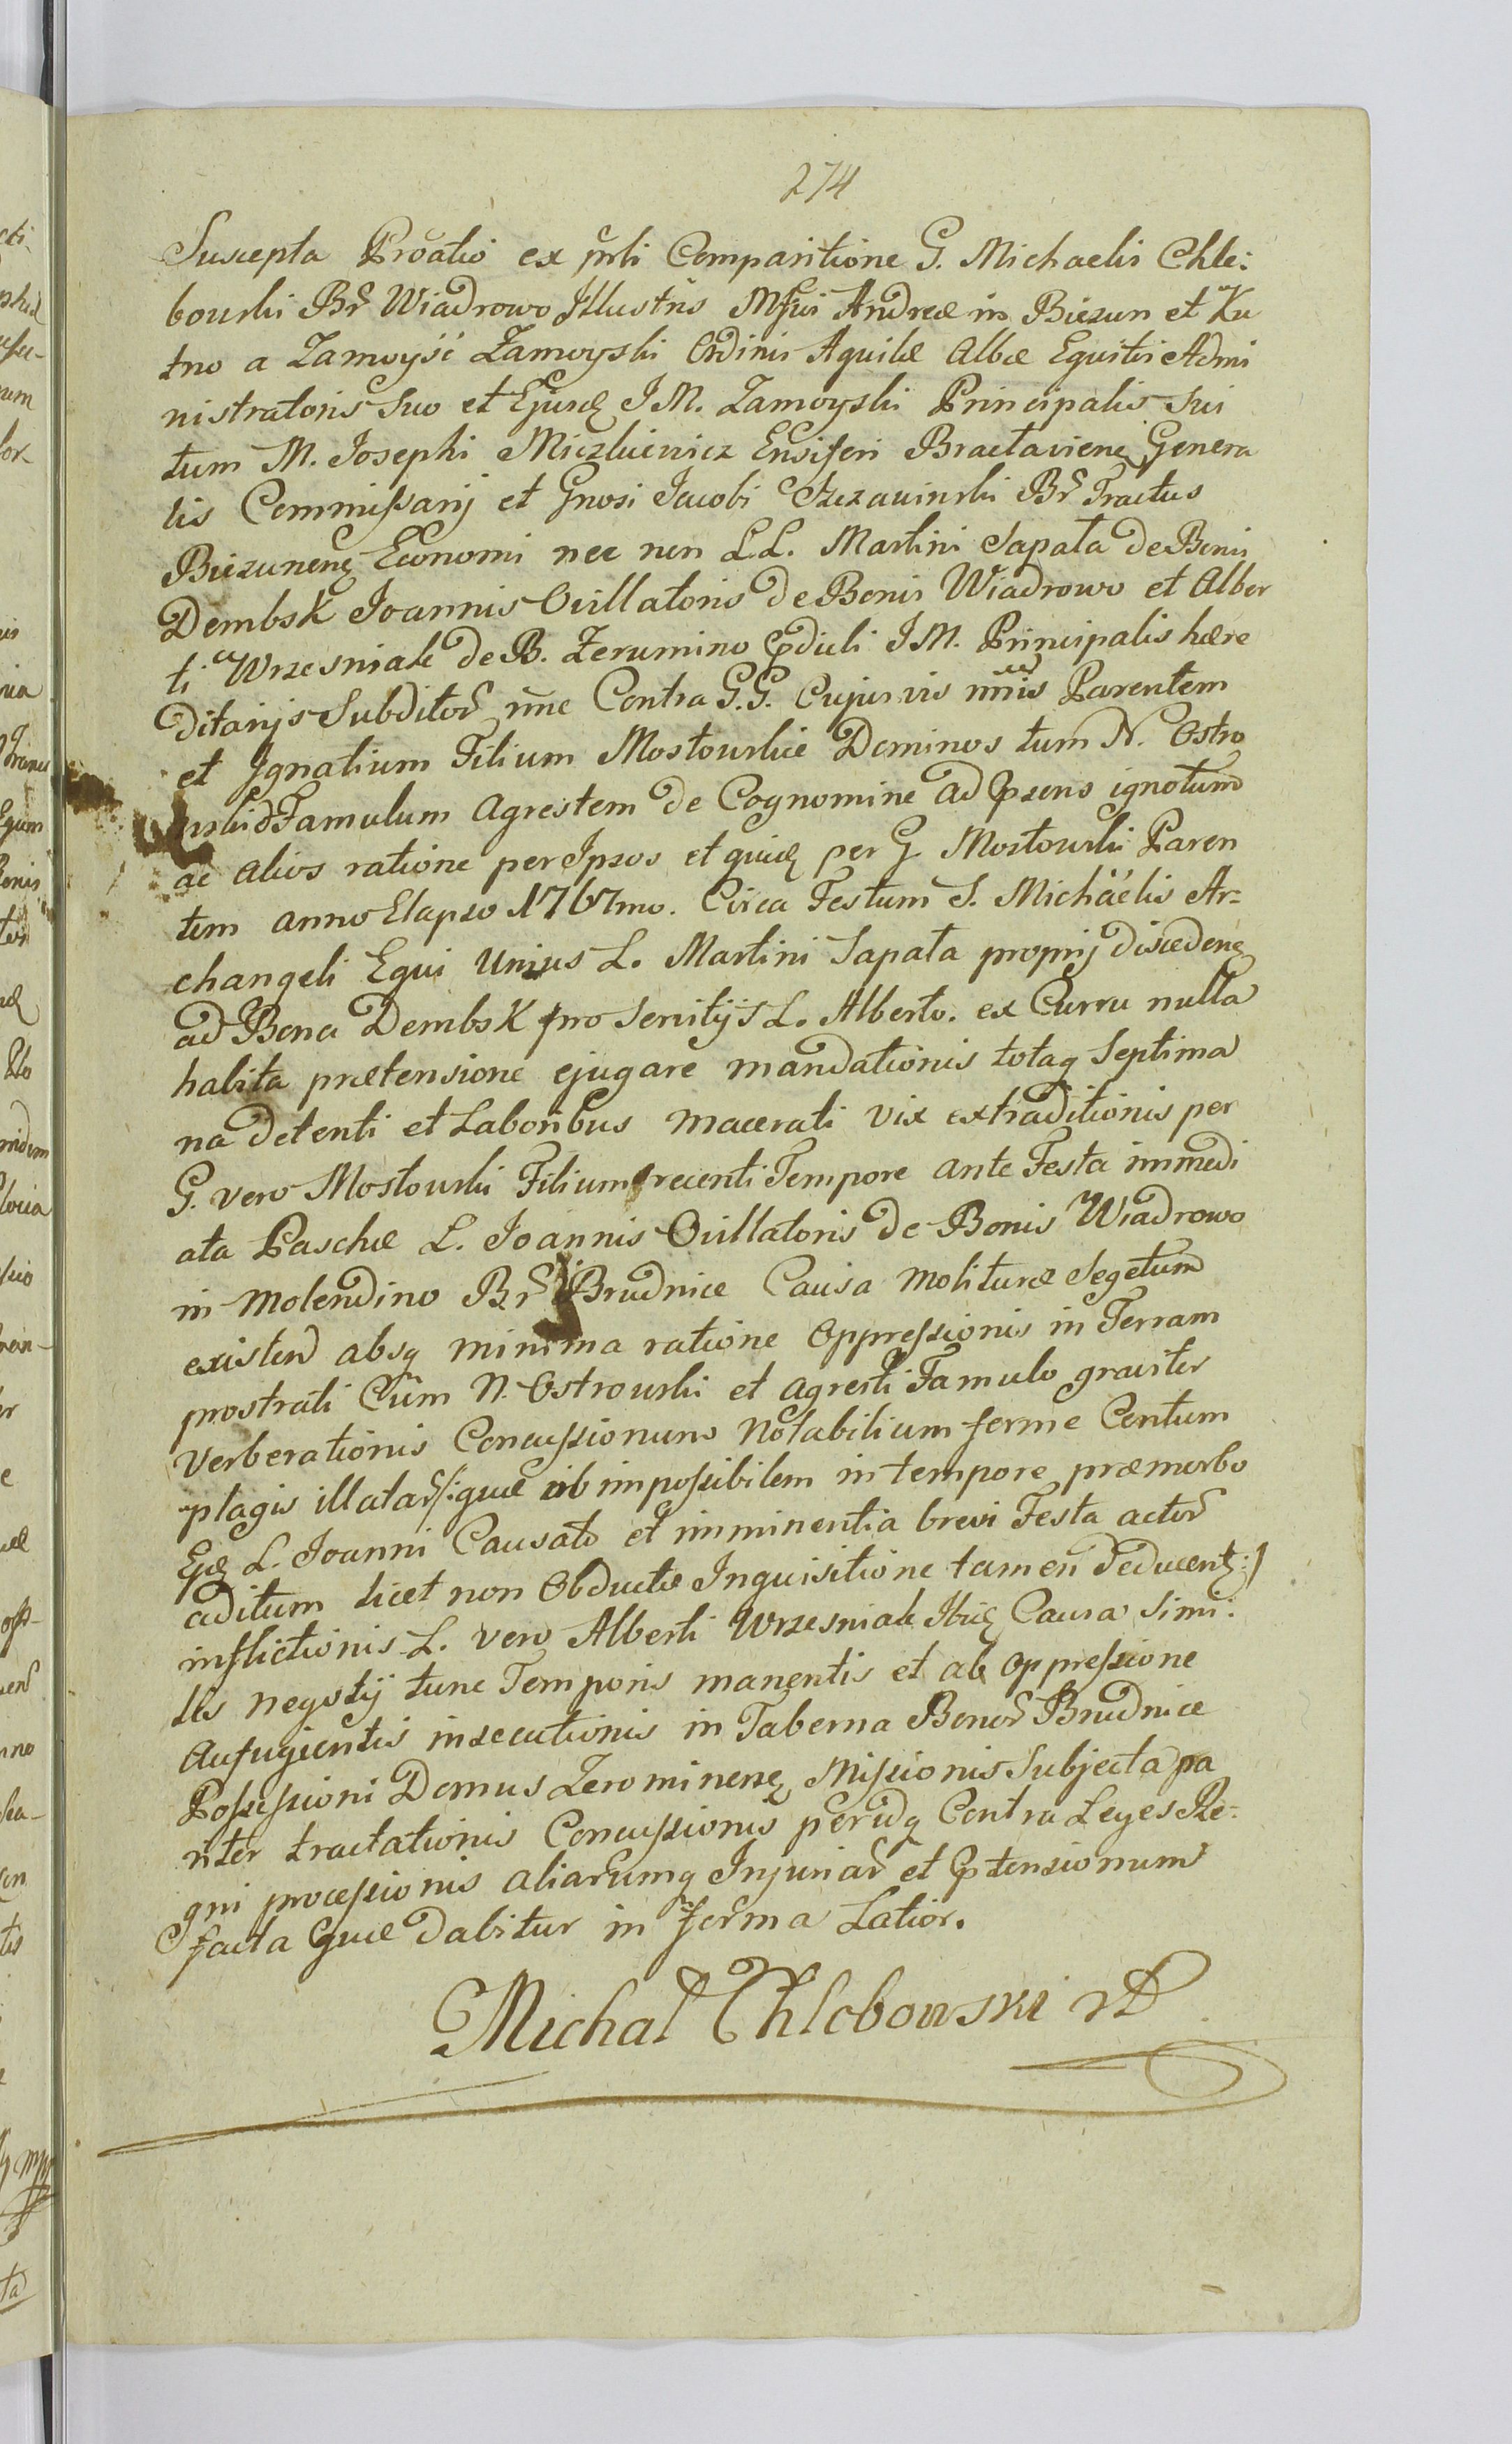 274
Suscepta Proatio ex prti Comparitione G. Michaelis Chle:
bowski Br Wiadrowo Illustris Mfici Andreæ in Biezun et Ku
tno a Zamoyść Zamoyski Ordinis Aquilæ Albæ Equitis Admi
nistratoris Suo et Ejusd J M. Zamoyski Principalis Sui
tum M. Josephi Miczkiewicz Ensiferi Bractaviens Genera
lis Commissarij et Gnosi Jacobi Szczawinski Br Tractus
Biezunens Economi nec non L L. Martini Sapata de Bonis
Dembsk Joannis Ovillatoris de Bonis Wiadrowo et Alber
ti Wrzesniak de B. Zerumino prdicti J M. Principalis hære
ditarijs Subditor nne Contra G. G. Cujusvis nnis Parentem
et Ignatium Filium Mostowskie Dominos tum N. Ostro
wski Famulum agrestem de Cognomine ad præsens ignotum
ac alios ratione per Ipsos et quid per G Mostowski Paren
tem anno Elapso 1767mo. Circa Festum S. Michäelis Ar=
changeli Equi Unius L. Martini Sapata proprij discedens
ad Bona Dembsk pro Servitijs L. Alberto. ex Curru nulla
habita prætensione ejugare mandationis totaq Septima
na detenti et Laboribus macerati vix extraditionis per
G. vero Mostowski Filium recenti Tempore ante Festa immedi
ata Paschæ L. Joannis Ovillatoris de Bonis Wiadrowo
in Molendino Br Brudnice Causa molituræ Segetum
existen absq minima ratione Oppressionis in Terram
prostrati Cum N. Ostrowski et agresti Famulo graviter
Verberationis Concussionum Notabilium ferme Centum
plagis illatar /:quæ ob impossibilem in tempore præ morbo
Ejd L. Joanni Causato et imminentia brevi Festa actor
aditum licet non Obductæ Inquisitione tamen deducent:/
inflictionis L. vero Alberti Wrzesniak Ibid Causa Simi:
lis negotij tunc Temporis manentis et ab oppressione
Aufugientis insecutionis in Taberna Bonor Brudnice
Possessioni Domus Zerominens Missionis Subjecta pa
riter tractationis Concussionis peridq Contra Leges Re=
gni processionis aliarumq Injuriar et Prtensionum
facta Quæ dabitur in forma Latior.
Michał Chlebowski